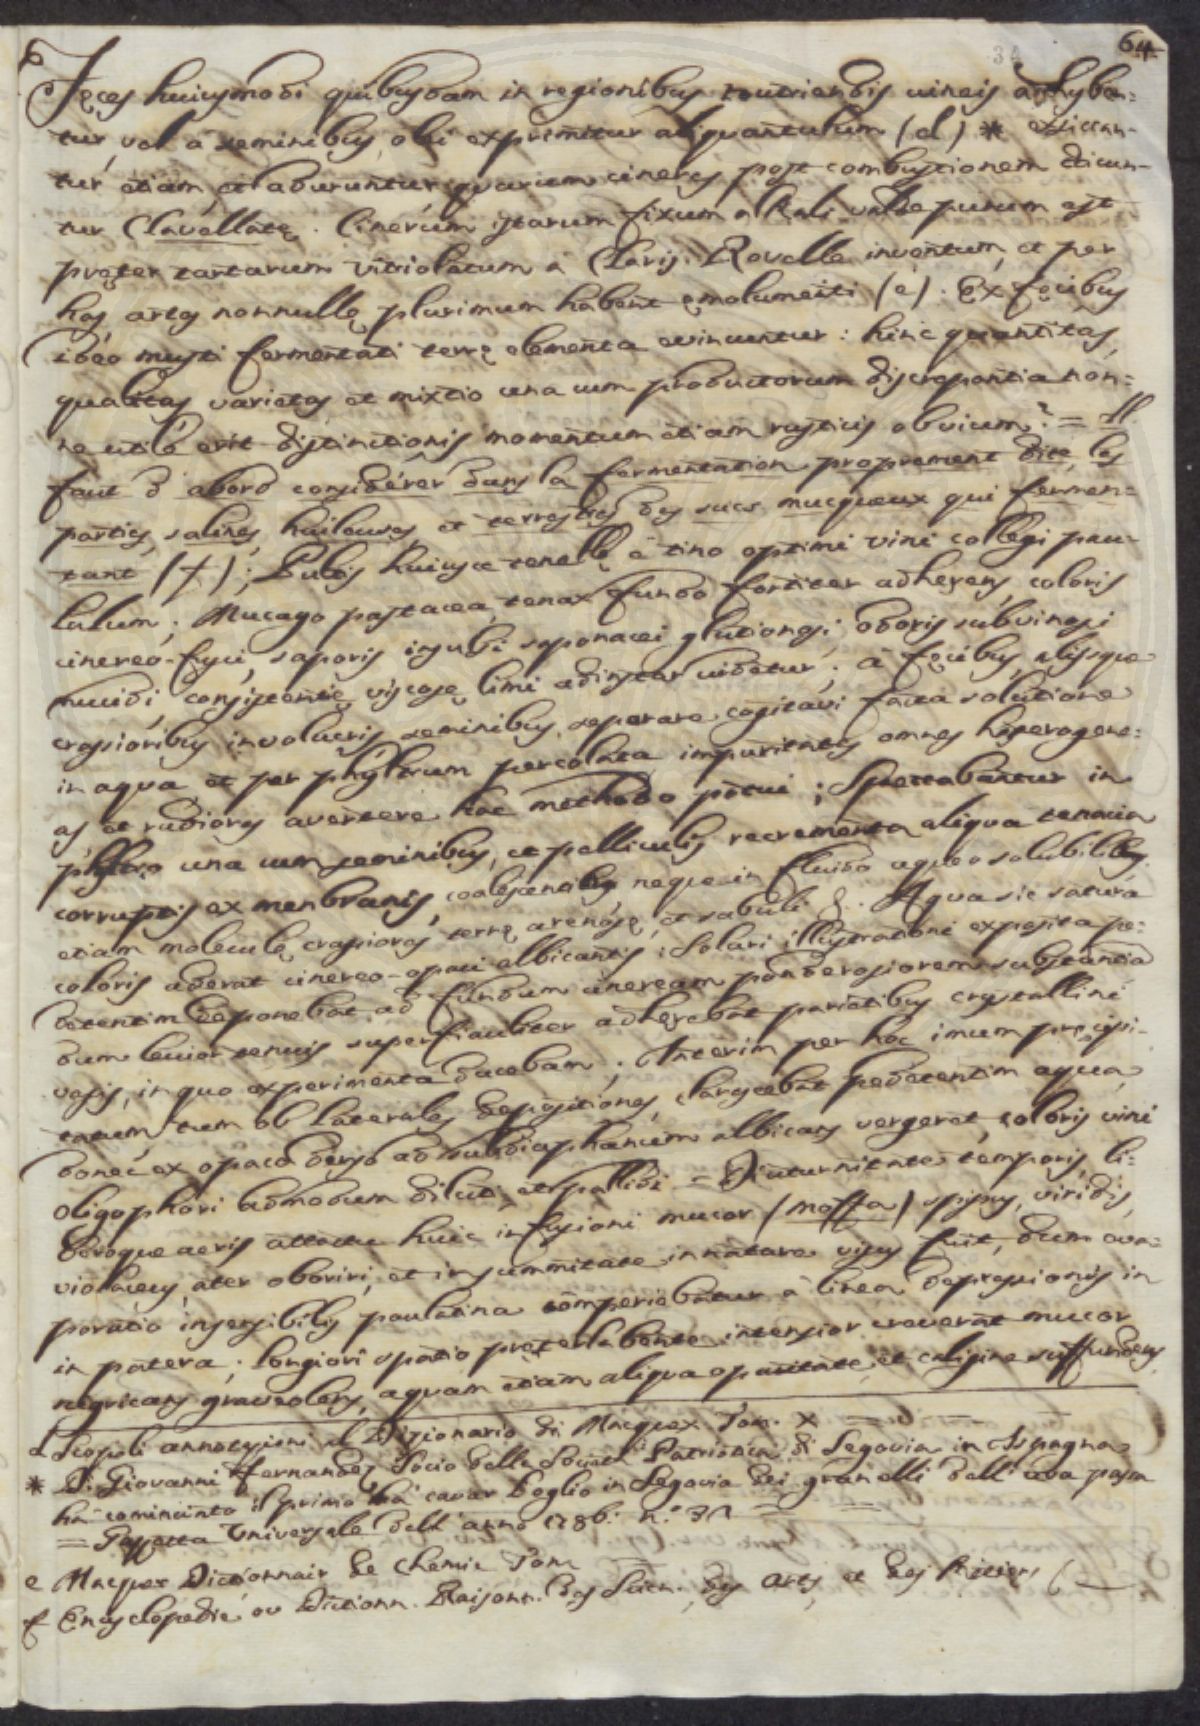 34
64
Fęces huiusmodi quibusdam in regionibus nutriendis vineis adhyben=
tur, vel a seminibus olei exprimitur aliquantulum (d) * exsiccan-
tur etiam, et aduruntur, quarum cineres post combustionem dicun-
tur Clavellatę. Cinerum istarum fixum alkali valde purum est
pręter tartarum vitriolatum a Claris. Rovelle inventum, et per
has artes nonnullę plurimum habent ęmolumenti (e). Ex fęcibus
ideo musti fermentati terrę elementa evincuntur: hinc quantitas,
qualitas varietas et mixtio una cum productorum discrepantia non=
ne utile erit distinctionis momentum etiam rusticis obvium? = Il
faut d'abord considérer dans la fermentation proprement dite, les
parties salines, huileuses, et terrestres des sucs mucqueux qui fermen=
tant (f); Pultis huiusce tenellę a tino optimi vini collegi pau-
lulum; Mucago pastacea, tenax fundo fortiter adhęrens, coloris
cinereo-fusci, saporis insulsi saponacei glutionosi, odoris subvinosi
mucidi, consistentię viscosę limi adinstar videtur; a fęcibus, aliisque
crassioribus involucris seminibus separare cogitavi facta solutione
in aqua et per phyltrum percolata impuritates omnes hęterogene=
as et rudiores avertere hac methodo potui; Spectabantur in
phyltro una cum seminibus, et pelliculis recrementa aliqua tenacia
corruptis ex menbranis, coalescentibus neque in fluido aqueo solubilibus
etiam moleculę crassiores terrę arenosę, et sabuli &. Aqua sic satura
coloris aderat cinereo-opaci albicantis; Solari illustrationi exposita pe=
detentim deponebat ad fundum cineream ponderosiorem substantia
dum levior tenuis superficialiter adhęrebat parietibus crystallini
vasis, in quo experimenta ducebam; Interim per hoc imum pręcipi-
tatum, tum ob laterales depositiones, clarescebat pedetentim aqua,
donec ex opaco denso ad subdiaphanum albicans vergeret, coloris vini
Oligophori admodum diluti, et pallidi = Diuturnitate temporis, li=
beroque aeris attactu huic infusioni mucor (moffa) spissus, viridis,
violaceus, ater oboriri, et in summitate innatare visus fuit, dum eva=
poratio insensibilis paulatina comperiebatur a linea depressionis in
in patera; longiori spatio pręterlabente intensior creverat mucor
nigricans graveolens, aquam etiam aliqua opacitate et caligine suffundens
d Scopoli annotazioni al Dizionario di Macquer Tom. X =
* D. Giovanni Fernandez Socio della Società Patriotica di Segovia in Ispagna
ha cominciato il primo ha cavar l'oglio in Segovia dei granelli dell'uva passa
= Gazzetta Universale dell'anno 1786: n.°
e Macquer Dictionnair de Chemie Tom
f Encyclopedie ou Dictionn. Raisonn. des Scien. des Arts, et des Metiers (